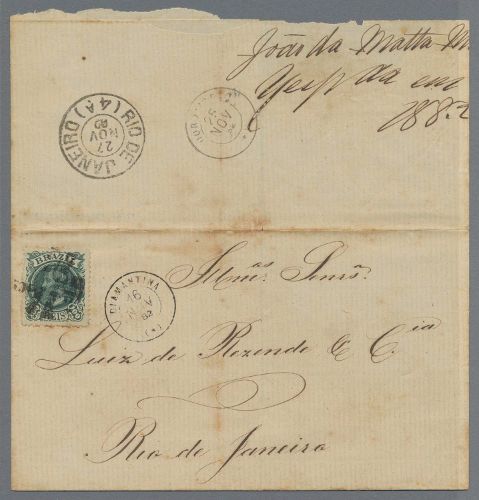 João da Matta M
Resp da em
1882
RIO DE JANEIRO (4A)
27
NOV
82
NOV
BRAZIL
REIS
DIAMANTINA
16
NOV
82
Illmos. Senrs.
Luiz de Rezende & Cia
Rio de Janeiro